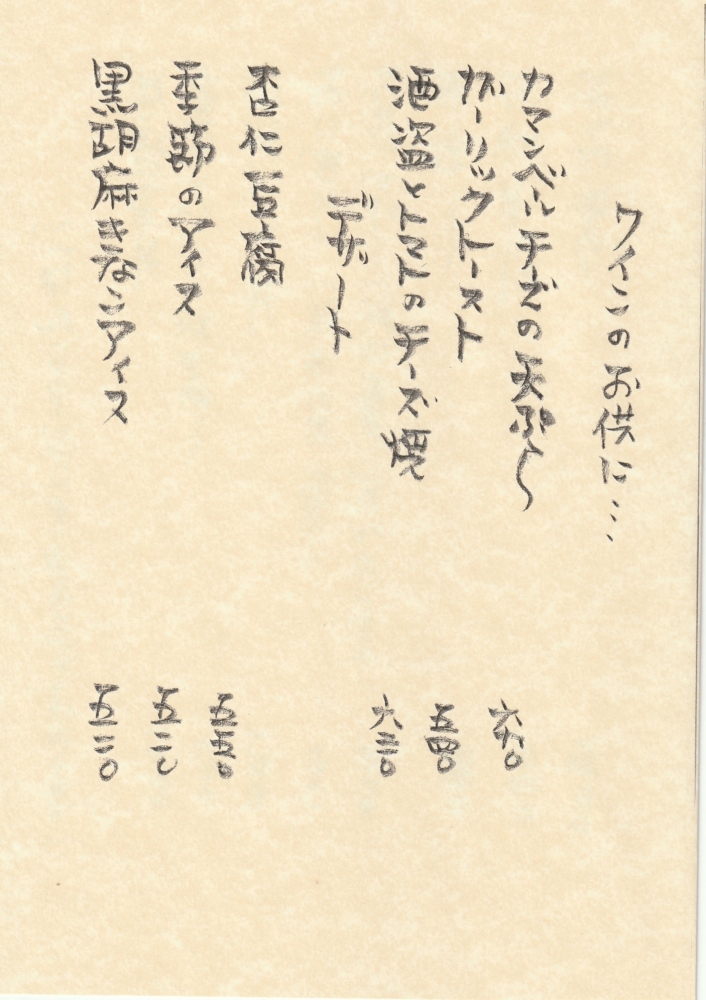 ワインのお供に…
カマンベールチーズの天ぷら
六九〇
ガーリックトースト
五四〇
酒盗とトマトのチーズ焼
六三〇
デザート
杏仁豆腐
五五〇
季節のアイス
五二〇
黒胡麻きなこアイス
五二〇